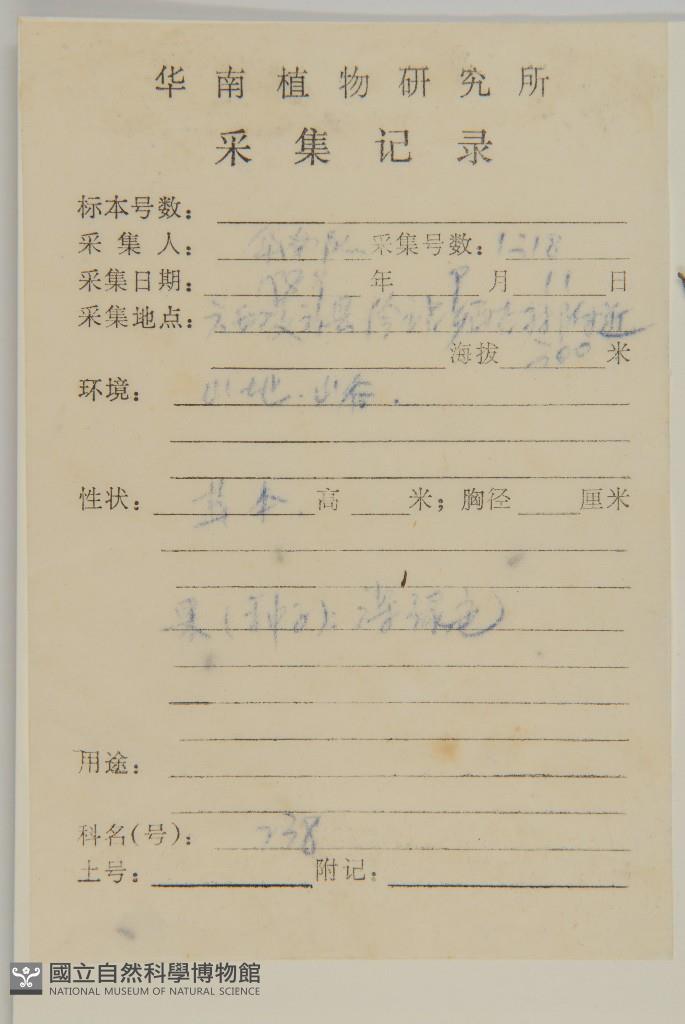 华南植物研究所
采集记录
标本号数:
采集人: 采集号数: 1218
采集日期: 年 8 月 11 日
采集地点: 附近
海拔 300 米
环境: 山地.山谷.
性状: 草本. 高 米; 胸径 厘米
果(种子): 浅绿色
用途:
科名(号): 238
土号: 附记:
國立自然科學博物館
NATIONAL MUSEUM OF NATURAL SCIENCE